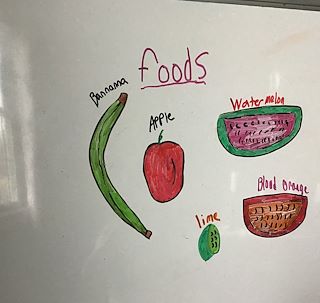 foods
Bannana
Apple
Watermelon
Blood orange
lime